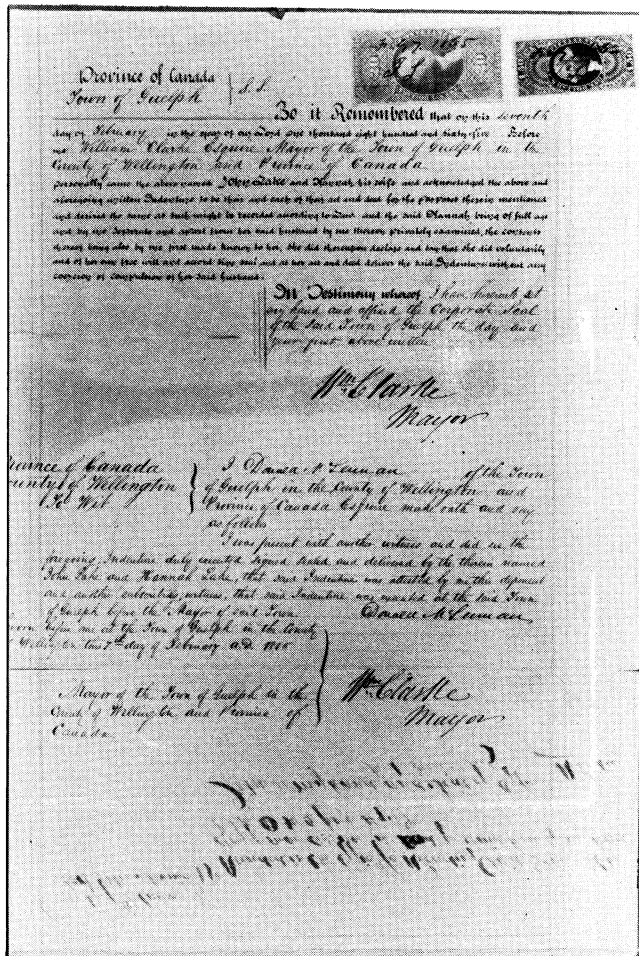 Feb 7 1865
Province of Canada
Town of Guelph } S.S.
Be it Remembered that on this seventh
day of February in the year of our Lord one thousand eight hundred and sixty-five Before
me William Clarke Esquire Mayor of the Town of Guelph in the
County of Wellington said Province of Canada
personally came the above named John Lake and Hannah his wife and acknowledged the above and
aforegoing written Indenture to be their and each of their act and deed for the purposes therein mentioned
and desired the same as such might be recorded according to Law and the said Hannah being of full age
and by me separate and apart from her said husband by me thereon privately examined, the contents
thereof being also by me first made known to her, she did thereupon declare and say that she did voluntarily
and of her own free will and accord sign seal and as her act and deed deliver the said Indenture without any
coercion or compulsion of her said husband.
In Testimony whereof I have hereunto set
my hand and affixed the Corporate Seal
of the said Town of Guelph the day and
year first above written
Wm Clarke
Mayor
Province of Canada
County of Wellington
To Wit
I of the Town
of Guelph in the County of Wellington and
Province of Canada Esquire make oath and say
as follows
I was present with another witness and did see the
foregoing Indenture duly executed signed sealed and delivered by the therein named
John Lake and Hannah Lake, that said Indenture was attested by me this deponent
and another subscribing witness, that said Indenture was executed at the said Town
of Guelph before the Mayor of said Town
before me at the Town of Guelph in the County
Wellington this 7th day of February a.d. 1865
Mayor of the Town of Guelph in the
County of Wellington and Province of
Canada
Wm Clarke
Mayor